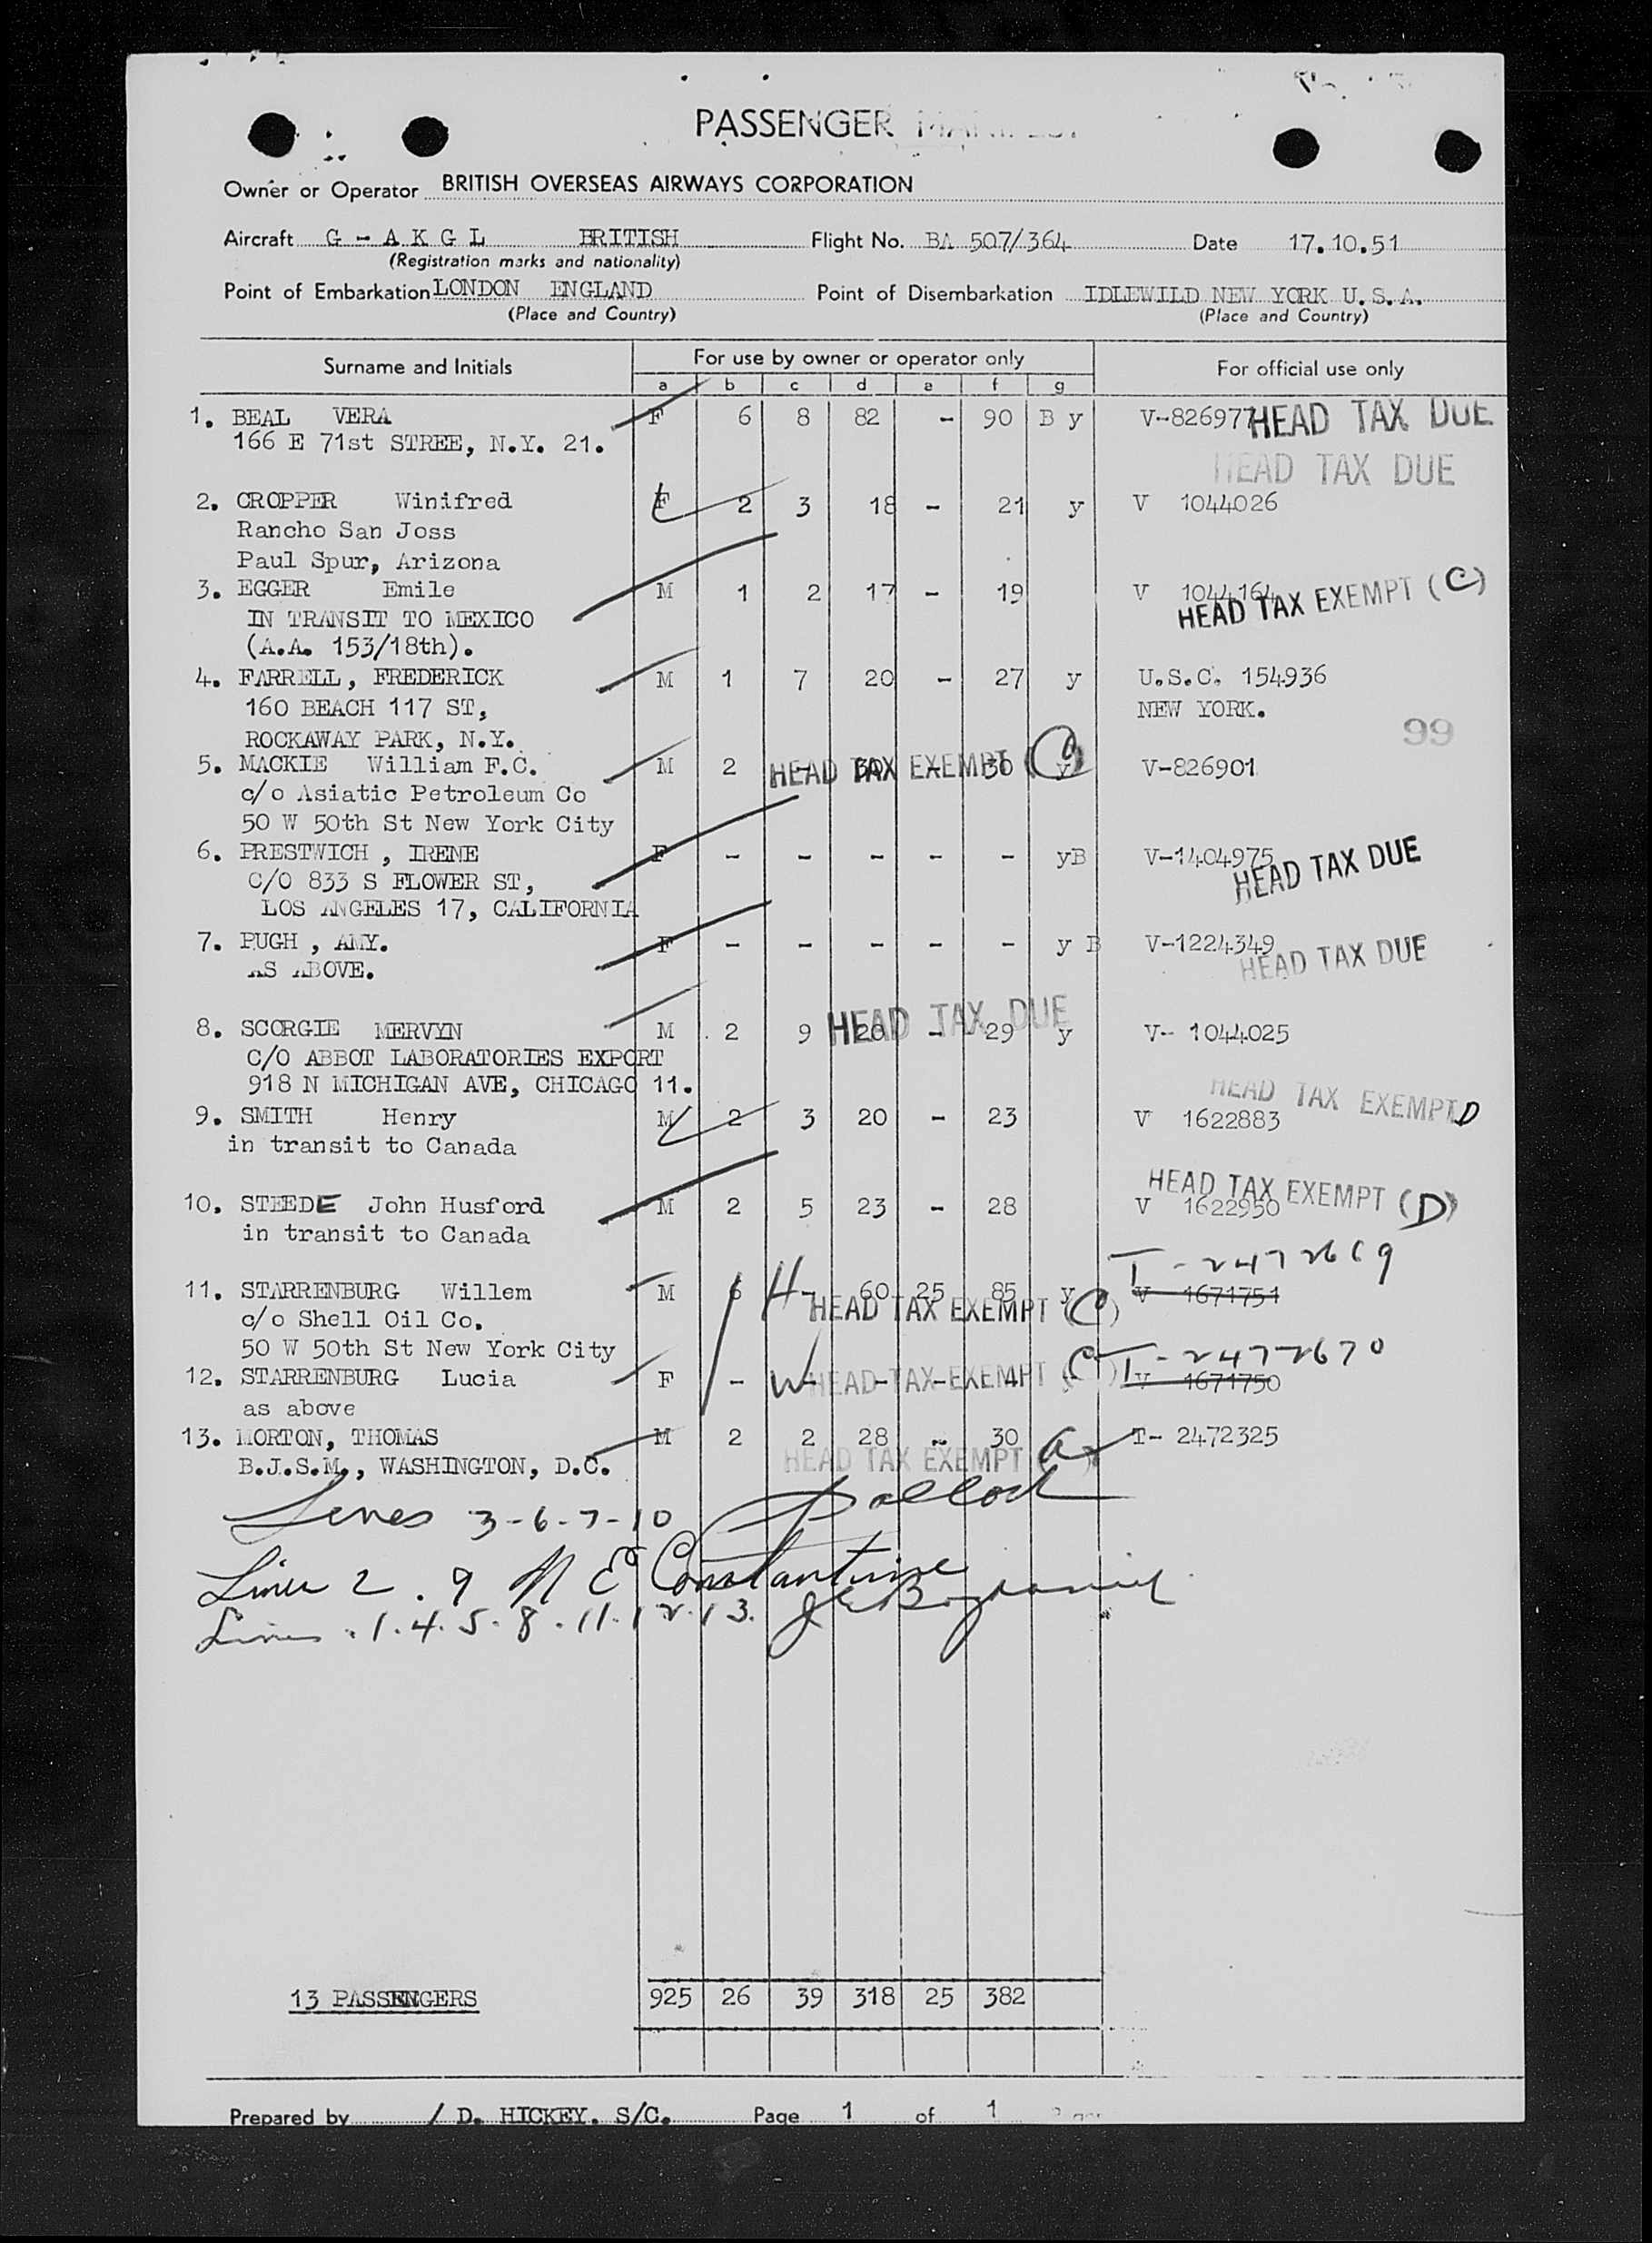 PASSENGER
Owner or Operator BRITISH OVERSEAS AIRWAYS CORPORATION
Aircraft G - A K G L BRITISH Flight No. BA 507/364 Date 17.10.51
(Registration marks and nationality)
Point of Embarkation LONDON ENGLAND Point of Disembarkation IDLEWILD NEW YORK U.S.A.
(Place and Country) (Place and Country)
Surname and Initials For use by owner or operator only For official use only
a b c d e f g
1. BEAL VERA F 6 8 82 - 90 B y V-826977 HEAD TAX DUE
166 E 71st STREE, N.Y. 21.
HEAD TAX DUE
2. CROPPER Winifred F 2 3 18 - 21 y V 1044026
Rancho San Joss
Paul Spur, Arizona
3. EGGER Emile M 1 2 17 - 19 V 1044164
HEAD TAX EXEMPT (C)
IN TRANSIT TO MEXICO
(A.A. 153/18th).
4. FARRELL, FREDERICK M 1 7 20 - 27 y U.S.C. 154936
160 BEACH 117 ST, NEW YORK.
99
ROCKAWAY PARK, N.Y.
5. MACKIE William F.C. M 2 - 30 - 30 y V-826901
HEAD TAX EXEMPT (C)
c/o Asiatic Petroleum Co
50 W 50th St New York City
6. PRESTWICH , IRENE F - - - - - yB V-1404975
HEAD TAX DUE
C/O 833 S FLOWER ST,
LOS ANGELES 17, CALIFORNIA
7. PUGH , AMY. F - - - - - y B V-1224349
HEAD TAX DUE
AS ABOVE.
HEAD TAX DUE
8. SCORGIE MERVYN M 2 9 20 - 29 y V- 1044025
C/O ABBOT LABORATORIES EXPORT
918 N MICHIGAN AVE, CHICAGO 11.
HEAD TAX EXEMPT D
9. SMITH Henry M 2 3 20 - 23 V 1622883
in transit to Canada
HEAD TAX EXEMPT (D)
10. STEEDE John Husford M 2 5 23 - 28 V 1622950
in transit to Canada
T-2472669
11. STARRENBURG Willem M 6 H - 60 25 85 y V 1671751
HEAD TAX EXEMPT (C)
c/o Shell Oil Co.
50 W 50th St New York City
T-2472670
12. STARRENBURG Lucia F - W - - - - V 1671750
HEAD TAX EXEMPT (C)
as above
13. MORTON, THOMAS M 2 2 28 - 30 T- 2472325
HEAD TAX EXEMPT (a)
B.J.S.M., WASHINGTON, D.C.
Lines 3-6-7-10 Pollock
Lines 2 . 9 N E Constantine
Lines . 1.4.5.8.11.12.13.
13 PASSENGERS 925 26 39 318 25 382
Prepared by / D. HICKEY. S/C. Page 1 of 1